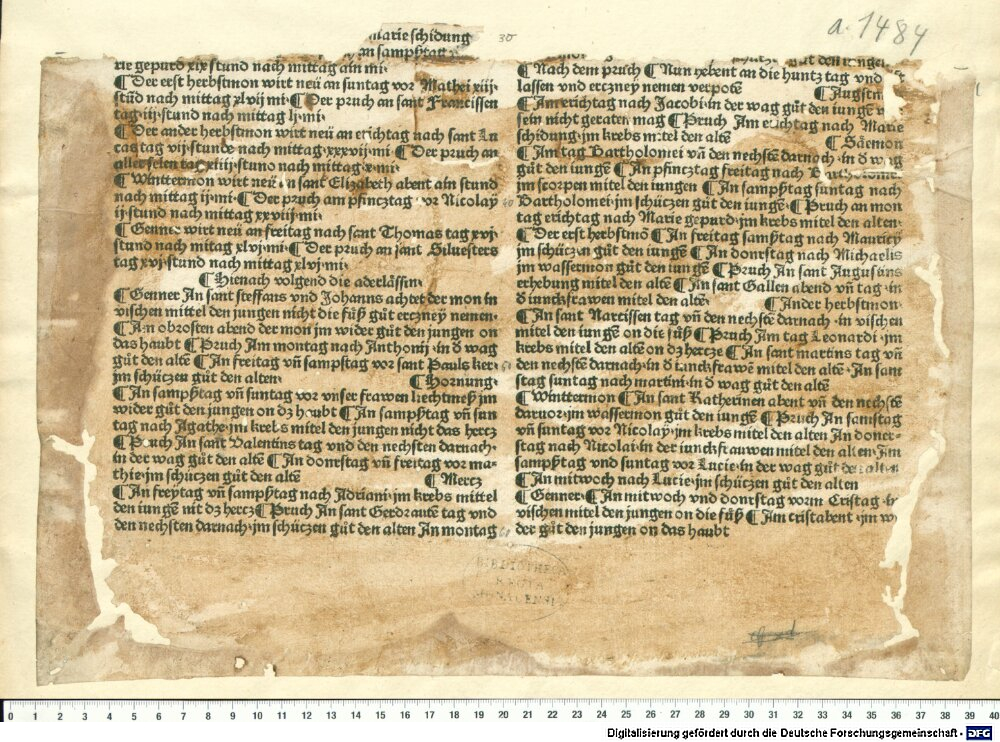 a. 1484
marie schidung 30
an sampßtag
rie gepurd xix stund nach mittag ain mi·
¶ Der erst herbstmon wirt neü an suntag vor Mathei xiij·
stūd nach mittag xlvij mi· ¶ Der pruch an sant Francissen
tag·iij·stund nach mittag lj·mi·
¶ Der ander herbstmon wirt neü an erichtag nach sant Lu
cas tag vij·stunde nach mittag·xxxvij·mi· ¶ Der pruch an
aller selen tag xiiij·stund nach mittag·ix·mi·
¶ Wintermon wirt neü an sant Elizabeth abent ain stund
nach mittag ij·mi· ¶ Der pruch am pfincztag vor Nicolaÿ
ij·stund nach mittag xxviij·mi·
¶ Genner wirt neü an freitag nach sant Thomas tag xvj·
stund nach mitag xlvj·mi· ¶ Der pruch an sant Siluesters
tag xvj·stund nach mittag xlvj·mi·
¶ Hienach volgend die aderlässin·
¶ Genner An sant steffans vnd Johanns achtet der mon in
vischen mittel den jungen nicht die füß güt erczneÿ nemen·
¶ An obrosten abend der mon jm wider güt den jungen on
das haubt ¶ Pruch Am montag nach Anthonij·in d̄ wag
güt den altē ¶ An freitag vn̄ sampstag vor sant Pauls ker·
jm schüczen güt den alten· ¶ Hornung·
¶ An sampßtag vn̄ suntag vor vnser frawen liechtmeß jm
wider güt den jungen on dz houbt ¶ An sampßtag vn̄ sun
tag nach Agathe·jm krebs mitel den jungen nicht das hercz
¶ Pruch An sant Valentins tag vnd den nechsten darnach·
in der wag güt den altē ¶ An donrstag vn̄ freitag vor ma-
thie·jm schüczen güt den altē ¶ Mercz
¶ An freytag vn̄ sampßtag nach Adriani·jm krebs mittel
den iungē nit dz hercz ¶ Pruch An sant Gerdrautē tag vnd
den nechsten darnach·jm schüczen güt den alten An montag
¶ Nach dem pruch ¶ Nun hebent an die huntz tag vnd
lassen vnd erczneÿ nemen verpotē ¶ Augstm
¶ Am erichtag nach Jacobi·in der wag güt den iungē
sein nicht geraten mag ¶ Pruch Am erichtag nach Marie
schidung·jm krebs mitel den altē ¶ Säemon
¶ Am tag Bartholomei vn̄ den nechstē darnach·in d̄ wag
güt den iungē ¶ An pfincztag freitag nach Bartholomei·
jm scorpen mitel den iungen ¶ An sampßtag suntag nach
Bartholomei·jm schüczen güt den iungē· ¶ Pruch an mon
tag erichtag nach Marie gepurd·jm krebs mitel den alten·
¶ Der erst herbstmō ¶ An freitag sampßtag nach Mauricÿ
jm schüczen güt den iungē ¶ An donrstag nach Michaelis
jm wassermon güt den iungē ¶ Pruch An sant Augustins
erhebung mitel den altē ¶ An sant Gallen abend vn̄ tag·in
d̄ iunckfrawen mitel den altē· ¶ Ander herbstmon·
¶ An sant Narcissen tag vn̄ den nechstē darnach·in vischen
mitel den iungē on die füß ¶ Pruch Am tag Leonardi·jm
krebs mitel den altē on dz hercze ¶ An sant martins tag vn̄
den nechstē darnach·in d̄ iunckfrawē mitel den altē·An sam
stag suntag nach martini·in d̄ wag güt den altē
¶ Winttermon ¶ An sant Katherinen abent vn̄ den nechstē
daruor·jm wassermon güt den iungē ¶ Pruch An samstag
vn̄ suntag vor Nicolaÿ·jm krebs mitel den alten An doner-
stag nach Nicolai·in der iunckfrauwen mitel den altē·Am
sampßtag vnd suntag vor Lucie·in der wag güt den alten
¶ An mitwoch nach Lucie·jm schüczen güt den alten
¶ Genner· ¶ An mitwoch vnd donrstag vorm Cristag·in
vischen mitel den jungen on die füß ¶ Am cristabent·jm wi
der güt den jungen on das haubt
BIBLIOTHECA
REGIA
MONACENSIS
0 1 2 3 4 5 6 7 8 9 10 11 12 13 14 15 16 17 18 19 20 21 22 23 24 25 26 27 28 29 30 31 32 33 34 35 36 37 38 39 40
Digitalisierung gefördert durch die Deutsche Forschungsgemeinschaft - DFG